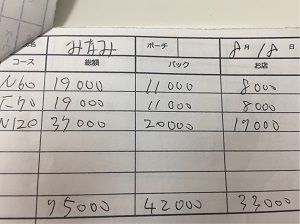 名 みなみ ポーチ 8月18日
コース 総額 バック お店
N60 19000 11000 8000
19000 11000 8000
N120 37000 20000 17000
75000 42000 33000